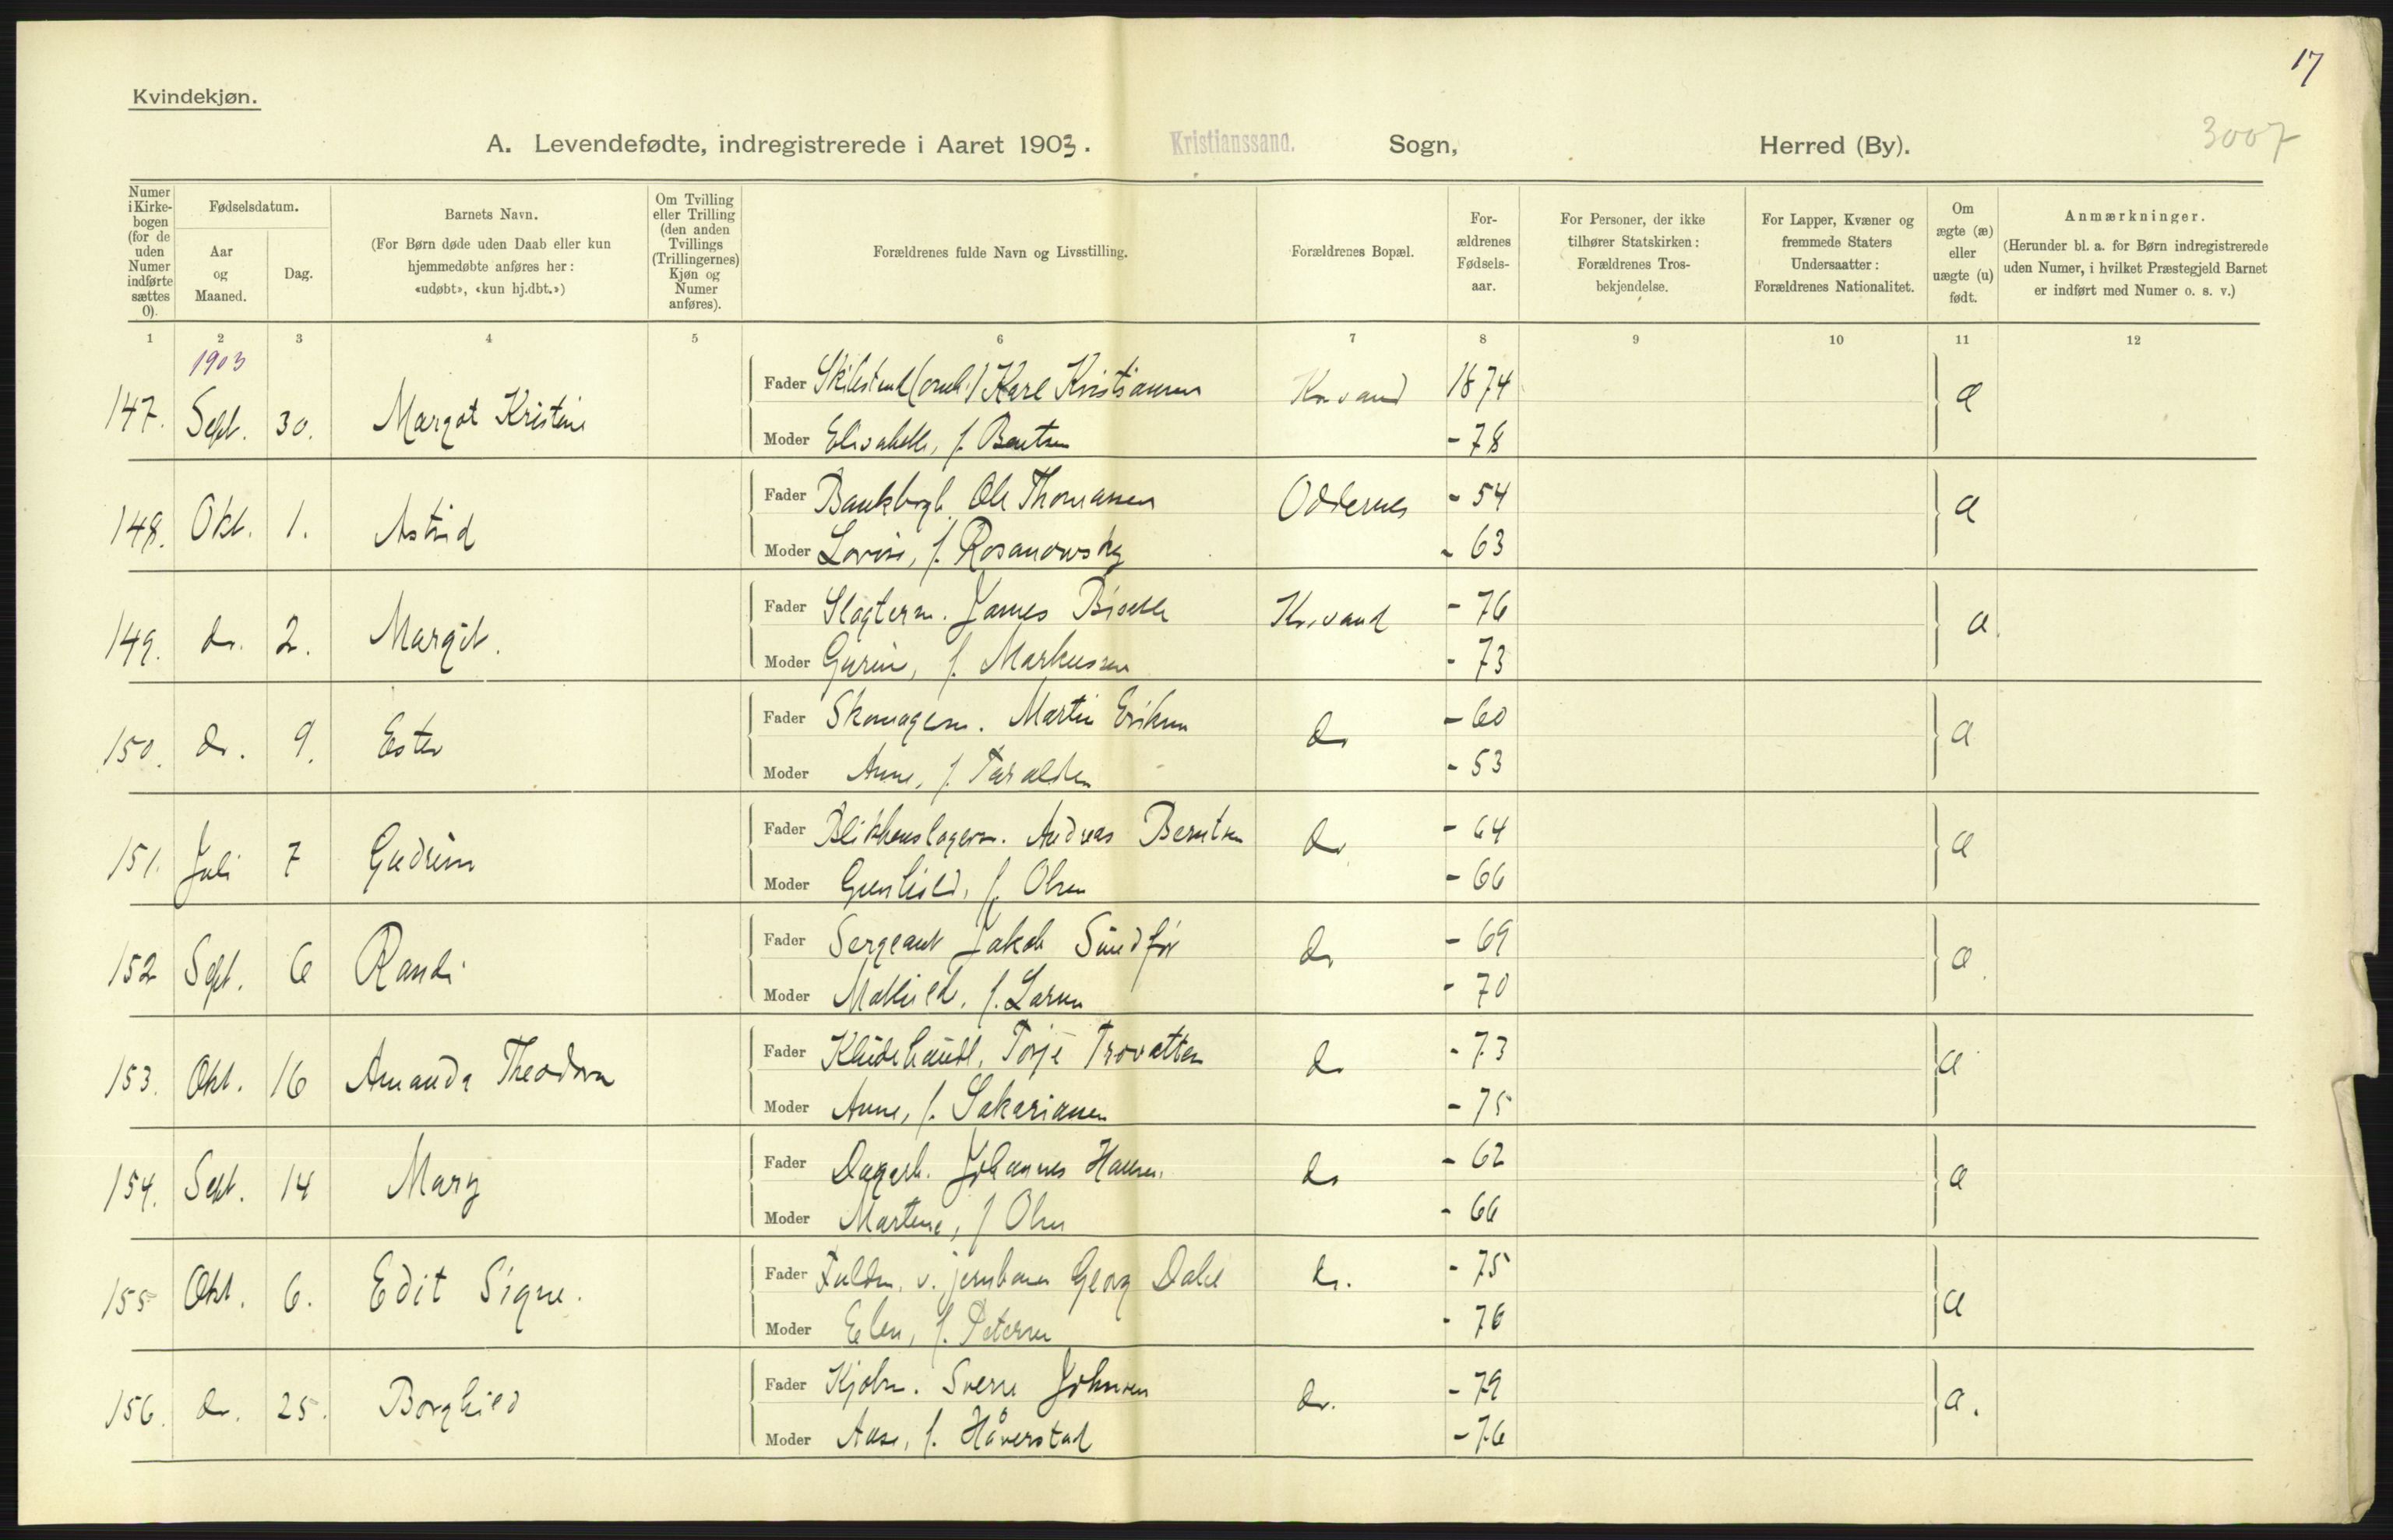 17
Kvindekjøn.
A. Levendefødte, indregistrerede i Aaret 1903. Kristianssand. Sogn, Herred (By).
3007
Numer i Kirkebogen (for de uden Numer indførte sættes 0).
Fødselsdatum.
Aar og Maaned.
Dag.
Barnets Navn.
(For Børn døde uden Daab eller kun hjemmedøbte anføres her: «udøbt», «kun hj.dbt.»)
Om Tvilling eller Trilling (den anden Tvillings (Trillingernes) Kjøn og Numer anføres).
Forældrenes fulde Navn og Livsstilling.
Forældrenes Bopæl.
Forældrenes Fødselsaar.
For Personer, der ikke tilhører Statskirken: Forældrenes Trosbekjendelse.
For Lapper, Kvæner og fremmede Staters Undersaatter: Forældrenes Nationalitet.
Om ægte (æ) eller uægte (u) født.
Anmærkninger.
(Herunder bl. a. for Børn indregistrerede uden Numer, i hvilket Præstegjeld Barnet er indført med Numer o. s. v.)
1 2 3 4 5 6 7 8 9 10 11 12
1903
147. Sept. 30. Margot Kristine Fader Karl Kristiansen Kr.sand 1874 æ
Moder Elisabeth, f. Bentsen - 78
148. Okt. 1. Astrid Fader Ole Thomassen Oddernes - 54 æ
Moder Lovise, f. Rosanowsky - 63
149. do. 2. Margit. Fader Slagterm. James Kr.sand - 76 æ
Moder Gurine, f. Markussen - 73
150. do. 9. Ester Fader Skomagerm. Martin Eriksen do - 60 æ
Moder Anne, f. Taraldsen - 53
151. Juli 7 Gudrun Fader Blikkenslagerm. Andreas Berntsen do - 64 æ
Moder Gunhild, f. Olsen - 66
152 Sept. 6 Randi Fader Sergeant Jakob Sundfør do - 69 æ
Moder Mathild, f. Larsen - 70
153. Okt. 16 Amanda Theodora Fader Kludehandl. Torje Trovatten do - 73 æ
Moder Anne, f. Sakariasen - 75
154. Sept. 14 Mary Fader Dagarb. Johannes Hansen do - 62 æ
Moder Martine, f. Olsen - 66
155 Okt. 6. Edit Signe. Fader v. jernbanen Georg Dahl do. - 75 æ
Moder Elen, f. Petersen - 76
156. do. 25. Borghild Fader Kjøbm. Sverre Johnsen do. - 79 æ.
Moder Aase, f. Håverstad - 76